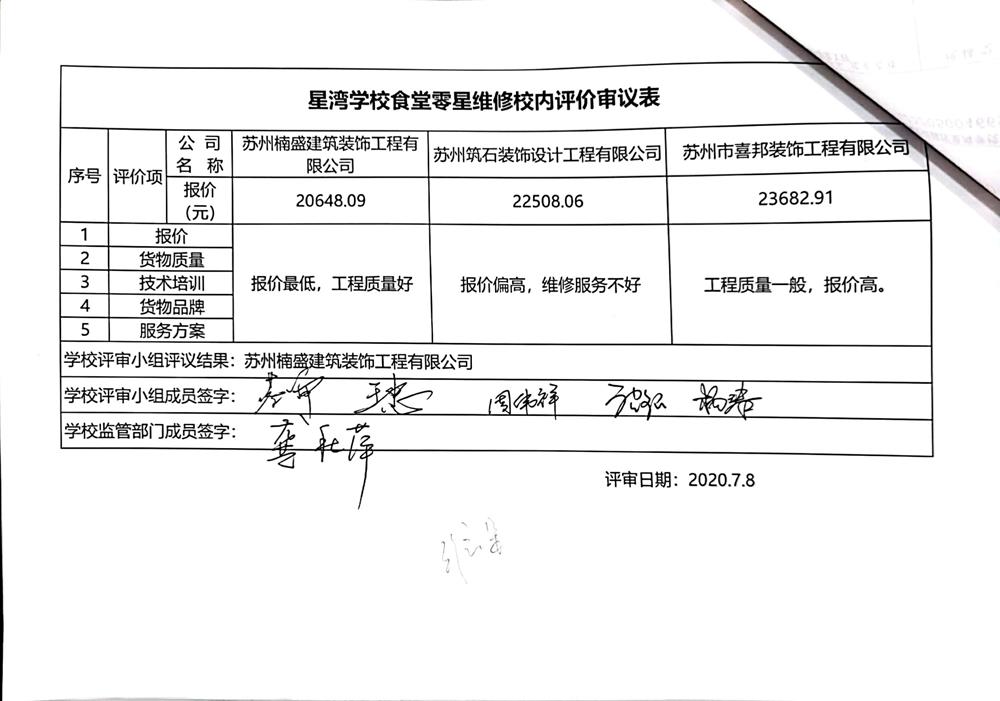 星湾学校食堂零星维修校内评价审议表
序号 评价项 公司名称 苏州楠盛建筑装饰工程有限公司 苏州筑石装饰设计工程有限公司 苏州市喜邦装饰工程有限公司
报价(元) 20648.09 22508.06 23682.91
1 报价 报价最低，工程质量好 报价偏高，维修服务不好 工程质量一般，报价高。
2 货物质量
3 技术培训
4 货物品牌
5 服务方案
学校评审小组评议结果：苏州楠盛建筑装饰工程有限公司
学校评审小组成员签字： 周伟祥
学校监管部门成员签字：
评审日期：2020.7.8